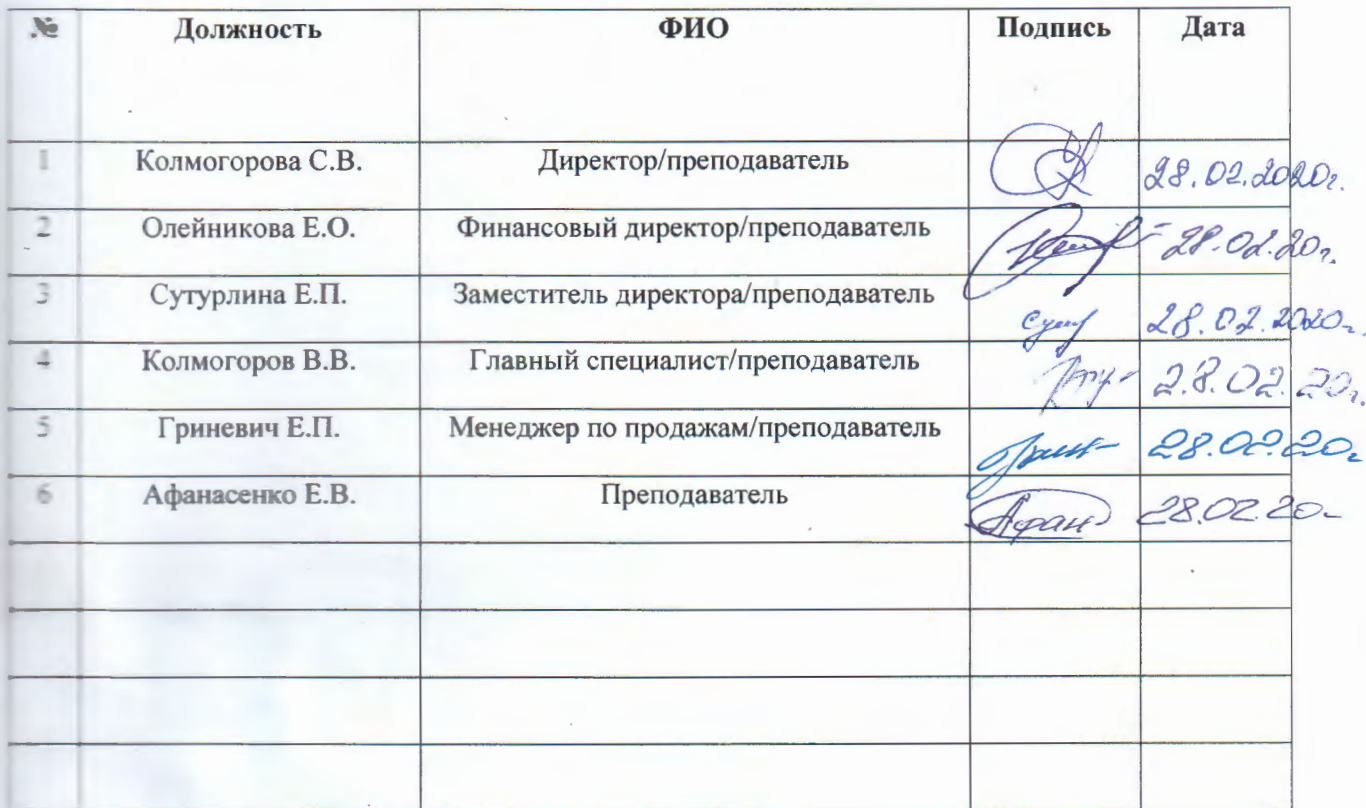 № Должность ФИО Подпись Дата
1 Колмогорова С.В. Директор/преподаватель 28.02.2020г.
2 Олейникова Е.О. Финансовый директор/преподаватель 28.02.20г.
3 Сутурлина Е.П. Заместитель директора/преподаватель 28.02.2020г.
4 Колмогоров В.В. Главный специалист/преподаватель 28.02.20г.
5 Гриневич Е.П. Менеджер по продажам/преподаватель 28.02.20г
6 Афанасенко Е.В. Преподаватель Афан 28.02.20